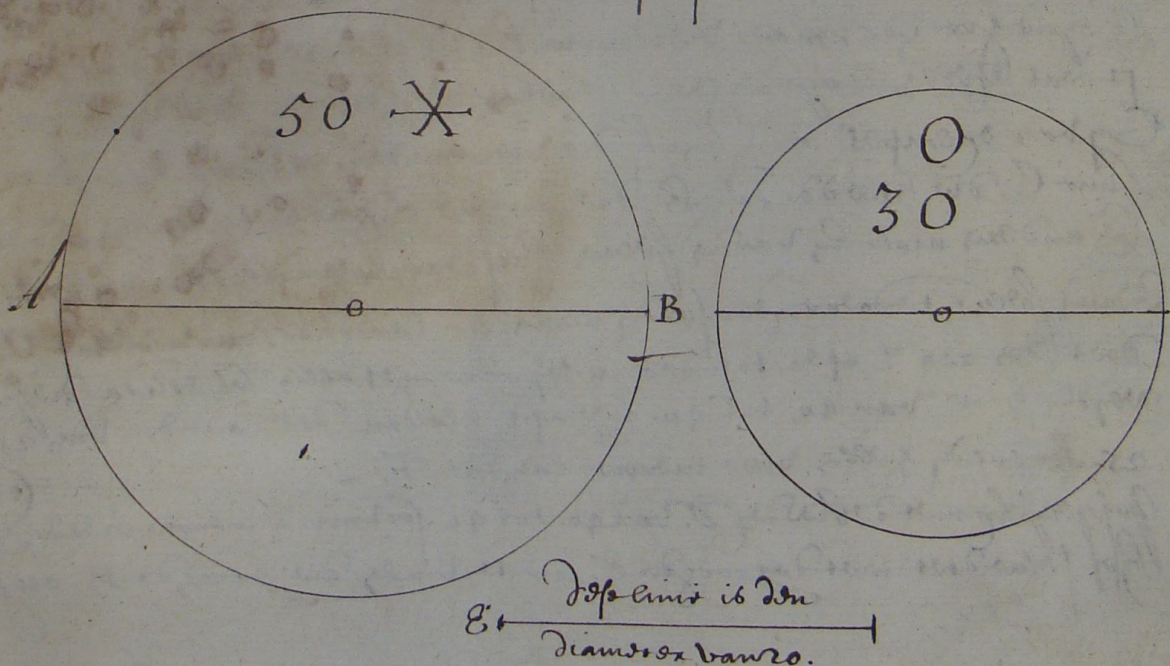 50 Ж
0
30
A
B
E
dese linie is den
diameter van 20.